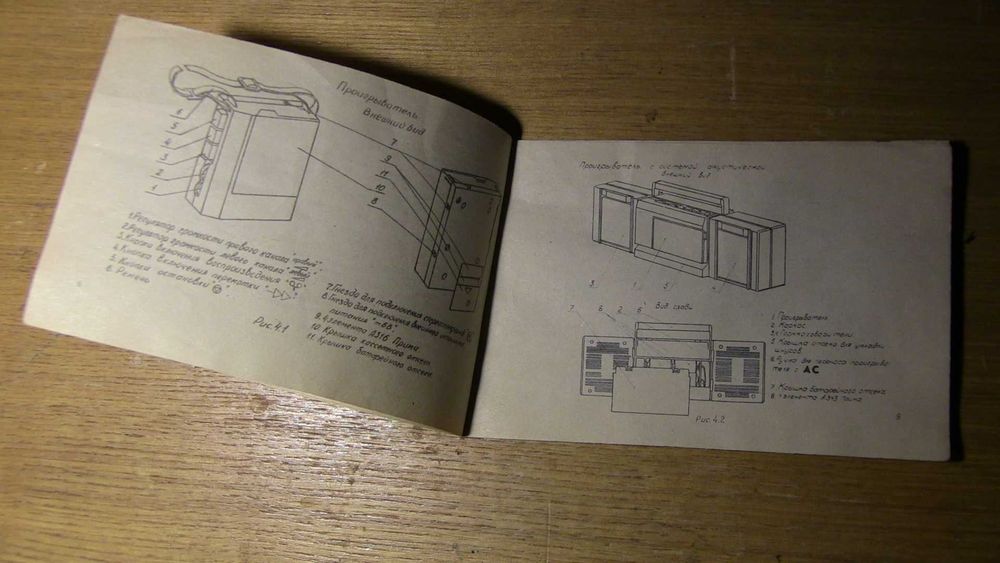 Проигрыватель
Внешний вид
6
5
4
3
2
1
7
9
11
10
8
1. Регулятор громкости правого канала "правый".
2. Регулятор громкости левого канала "левый".
3. Кнопка включения воспроизведения
4. Кнопка включения перемотки "▷▷".
5. Кнопка остановки
6. Ремень
7. Гнезда для подключения стереотелефонов
8. Гнезда для подключения внешнего источника
питания "=6В"
9. 4 элемента А316 Прима
10. Крышка кассетного отсека
11. Крышка батарейного отсека
Рис 4.1
Проигрыватель с системой акустической
внешний вид
3
1
5
4
Вид сзади
7
8
2
6
1 Проигрыватель
2 Каркас
3,4 Громкоговорители
5 Крышка отсека для укладки
шнуров
6 Ручка для переноса проигрыва
теля с АС
7 Крышка батарейного отсека
8 элемента А343
Рис. 4.2
9